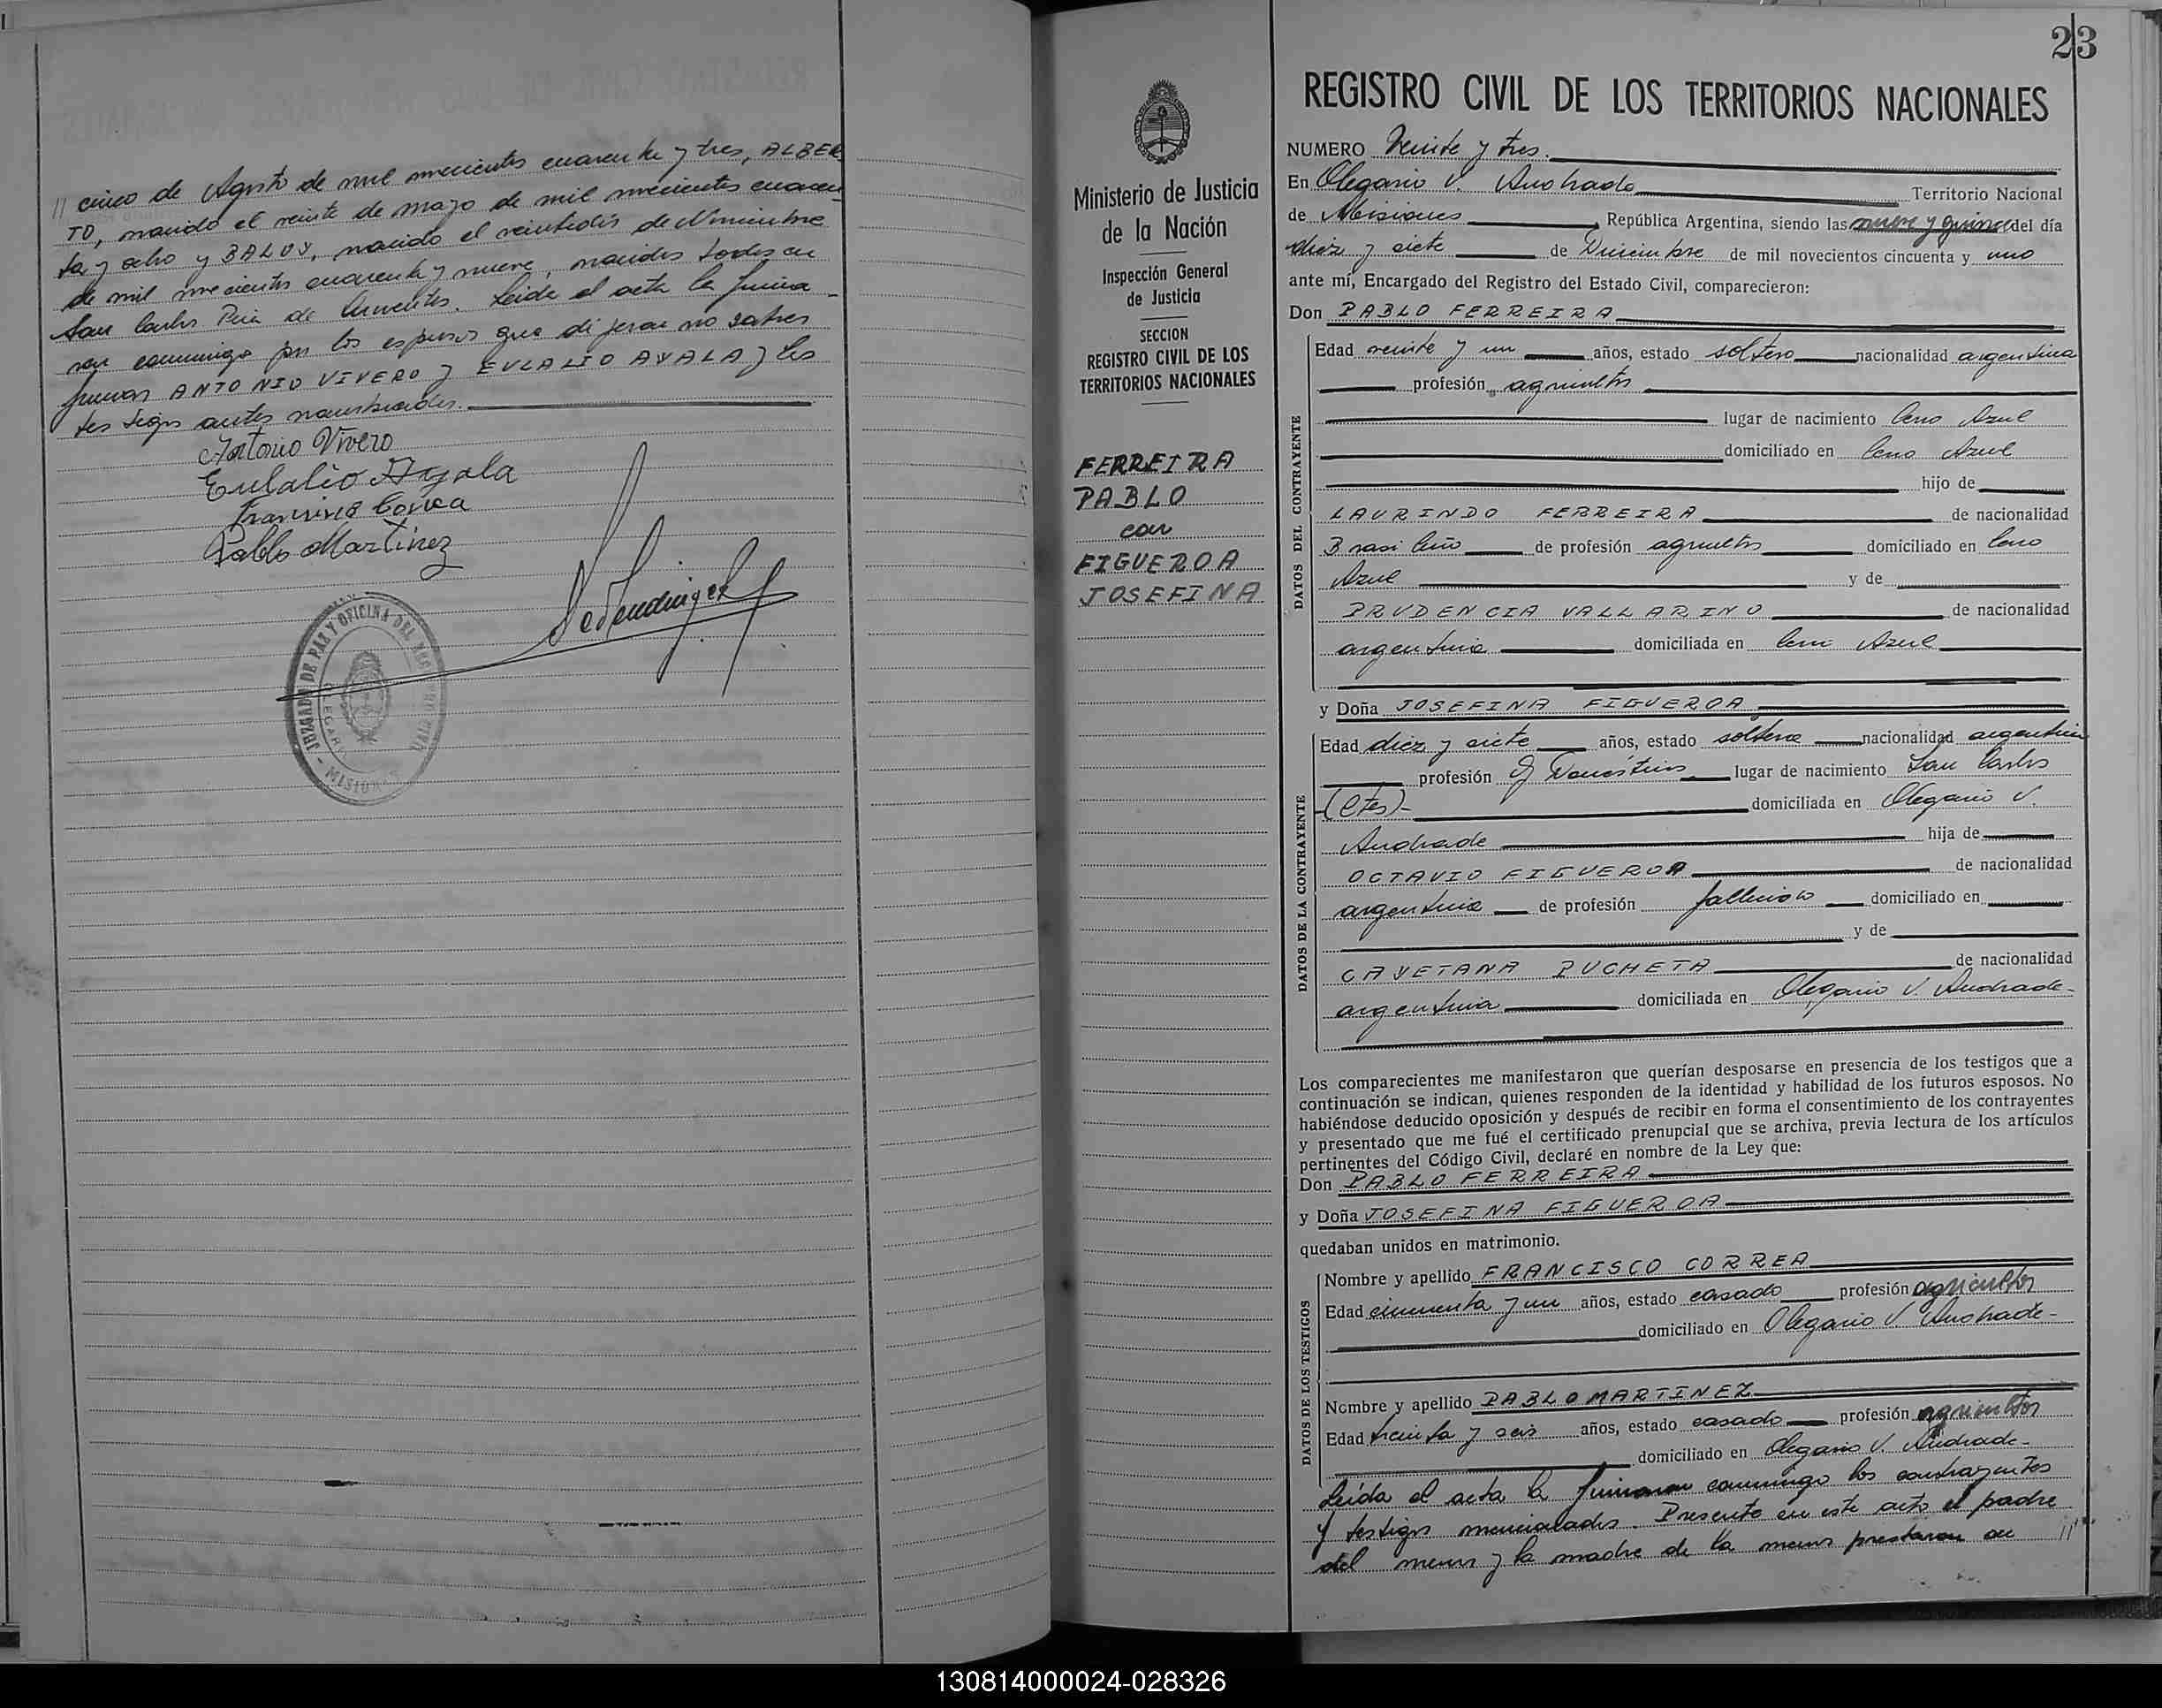 // cinco de Agosto de mil novecientos cuarenta y tres, ALBER
TO, nacido el veinte de mayo de mil novecientos cuaren
ta y ocho y BALOY, nacido el veintidós de Noviembre
de mil novecientos cuarenta y nueve, nacidos todos en
San Carlos Pcia de Corrientes. Leida el acta la firma
ron conmigo por los esposos que dijeron no saber
firmar ANTONIO VIVERO y EULALIO AYALA y los
testigos antes nombrados.
Antonio Vivero
Eulalio Ayala
Francisco Correa
Pablo Martinez
JUZGADO DE PAZ Y OFICINA DEL REGISTRO CIVIL
- MISIONES -
Ministerio de Justicia
de la Nación
Inspección General
de Justicia
SECCION
REGISTRO CIVIL DE LOS
TERRITORIOS NACIONALES
FERREIRA
PABLO
con
FIGUEROA
JOSEFINA
23
REGISTRO CIVIL DE LOS TERRITORIOS NACIONALES
NUMERO Veinte y tres.
En Olegario V. Andrade Territorio Nacional
de Misiones República Argentina, siendo las nueve y quince del día
diez y siete de Diciembre de mil novecientos cincuenta y uno
ante mí, Encargado del Registro del Estado Civil, comparecieron:
Don PABLO FERREIRA
DATOS DEL CONTRAYENTE
Edad veinte y un años, estado soltero nacionalidad argentina
profesión agricultor
lugar de nacimiento Cerro Azul
domiciliado en Cerro Azul
hijo de
LAURINDO FERREIRA de nacionalidad
Brasileño de profesión agricultor domiciliado en Cerro
Azul y de
PRUDENCIA VALLARINO de nacionalidad
argentina domiciliada en Cerro Azul
y Doña JOSEFINA FIGUEROA
DATOS DE LA CONTRAYENTE
Edad diez y siete años, estado soltera nacionalidad argentina
profesión Q Domésticos lugar de nacimiento San Carlos
(Ctes)- domiciliada en Olegario V.
Andrade hija de
OCTAVIO FIGUEROA de nacionalidad
argentina de profesión fallecido domiciliado en
y de
CAYETANA PUCHETA de nacionalidad
argentina domiciliada en Olegario V. Andrade-
Los comparecientes me manifestaron que querían desposarse en presencia de los testigos que a
continuación se indican, quienes responden de la identidad y habilidad de los futuros esposos. No
habiéndose deducido oposición y después de recibir en forma el consentimiento de los contrayentes
y presentado que me fué el certificado prenupcial que se archiva, previa lectura de los artículos
pertinentes del Código Civil, declaré en nombre de la Ley que:
Don PABLO FERREIRA
y Doña JOSEFINA FIGUEROA
quedaban unidos en matrimonio.
DATOS DE LOS TESTIGOS
Nombre y apellido FRANCISCO CORREA
Edad cincuenta y un años, estado casado profesión agricultor
domiciliado en Olegario V Andrade-
Nombre y apellido PABLO MARTINEZ
Edad treinta y seis años, estado casado profesión agricultor
domiciliado en Olegario V. Andrade-
Leída el acta la firmaron conmigo los contrayentes
y testigos mencionados. Presente en este acto el padre
del menor y la madre de la menor prestaron su //
130814000024-028326